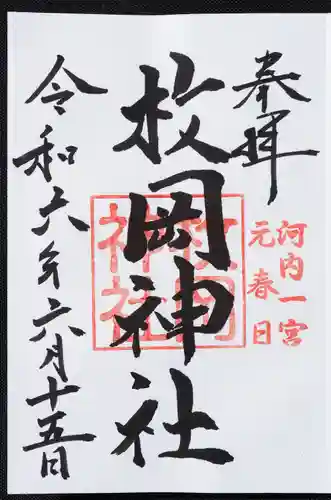 奉拝
河内一宮
元春日
枚岡神社
枚岡神社
令和六年六月十五日